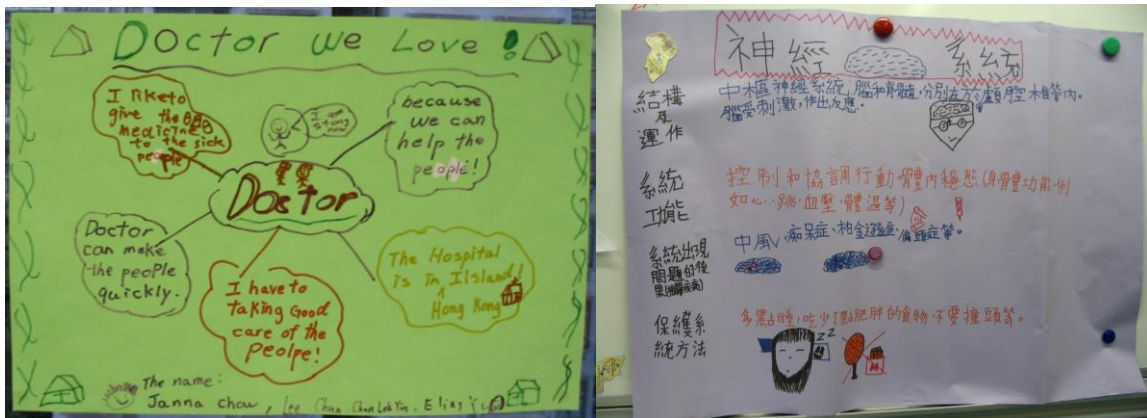 Doctor we Love!
I like to
give the
medicine
to the sick
people
I am
strong
now
because
we can
help the
people!
Doctor
Doctor
can make
the people
quickly.
I have to
taking Good
care of the
Peolpe!
The Hospital
is in Island!
Hong Kong
The name:
Janna Chow, Lee Chun Chan Lok Yin, Elias
神經 系統
結構
及
運作
中樞神經系統,腦和脊髓,分別在於顱腔椎管內。
腦受刺激,作出反應。
系統
功能
控制和協調行動,體內穩態(身體功能,例
如心跳,血壓,體溫等)
系統出現
問題的後
果
中風,痴呆症,柏金遜症,偏頭症等。
保護系
統方法
多點睡,吃少1點肥胖的食物,不要撞頭等。
zz